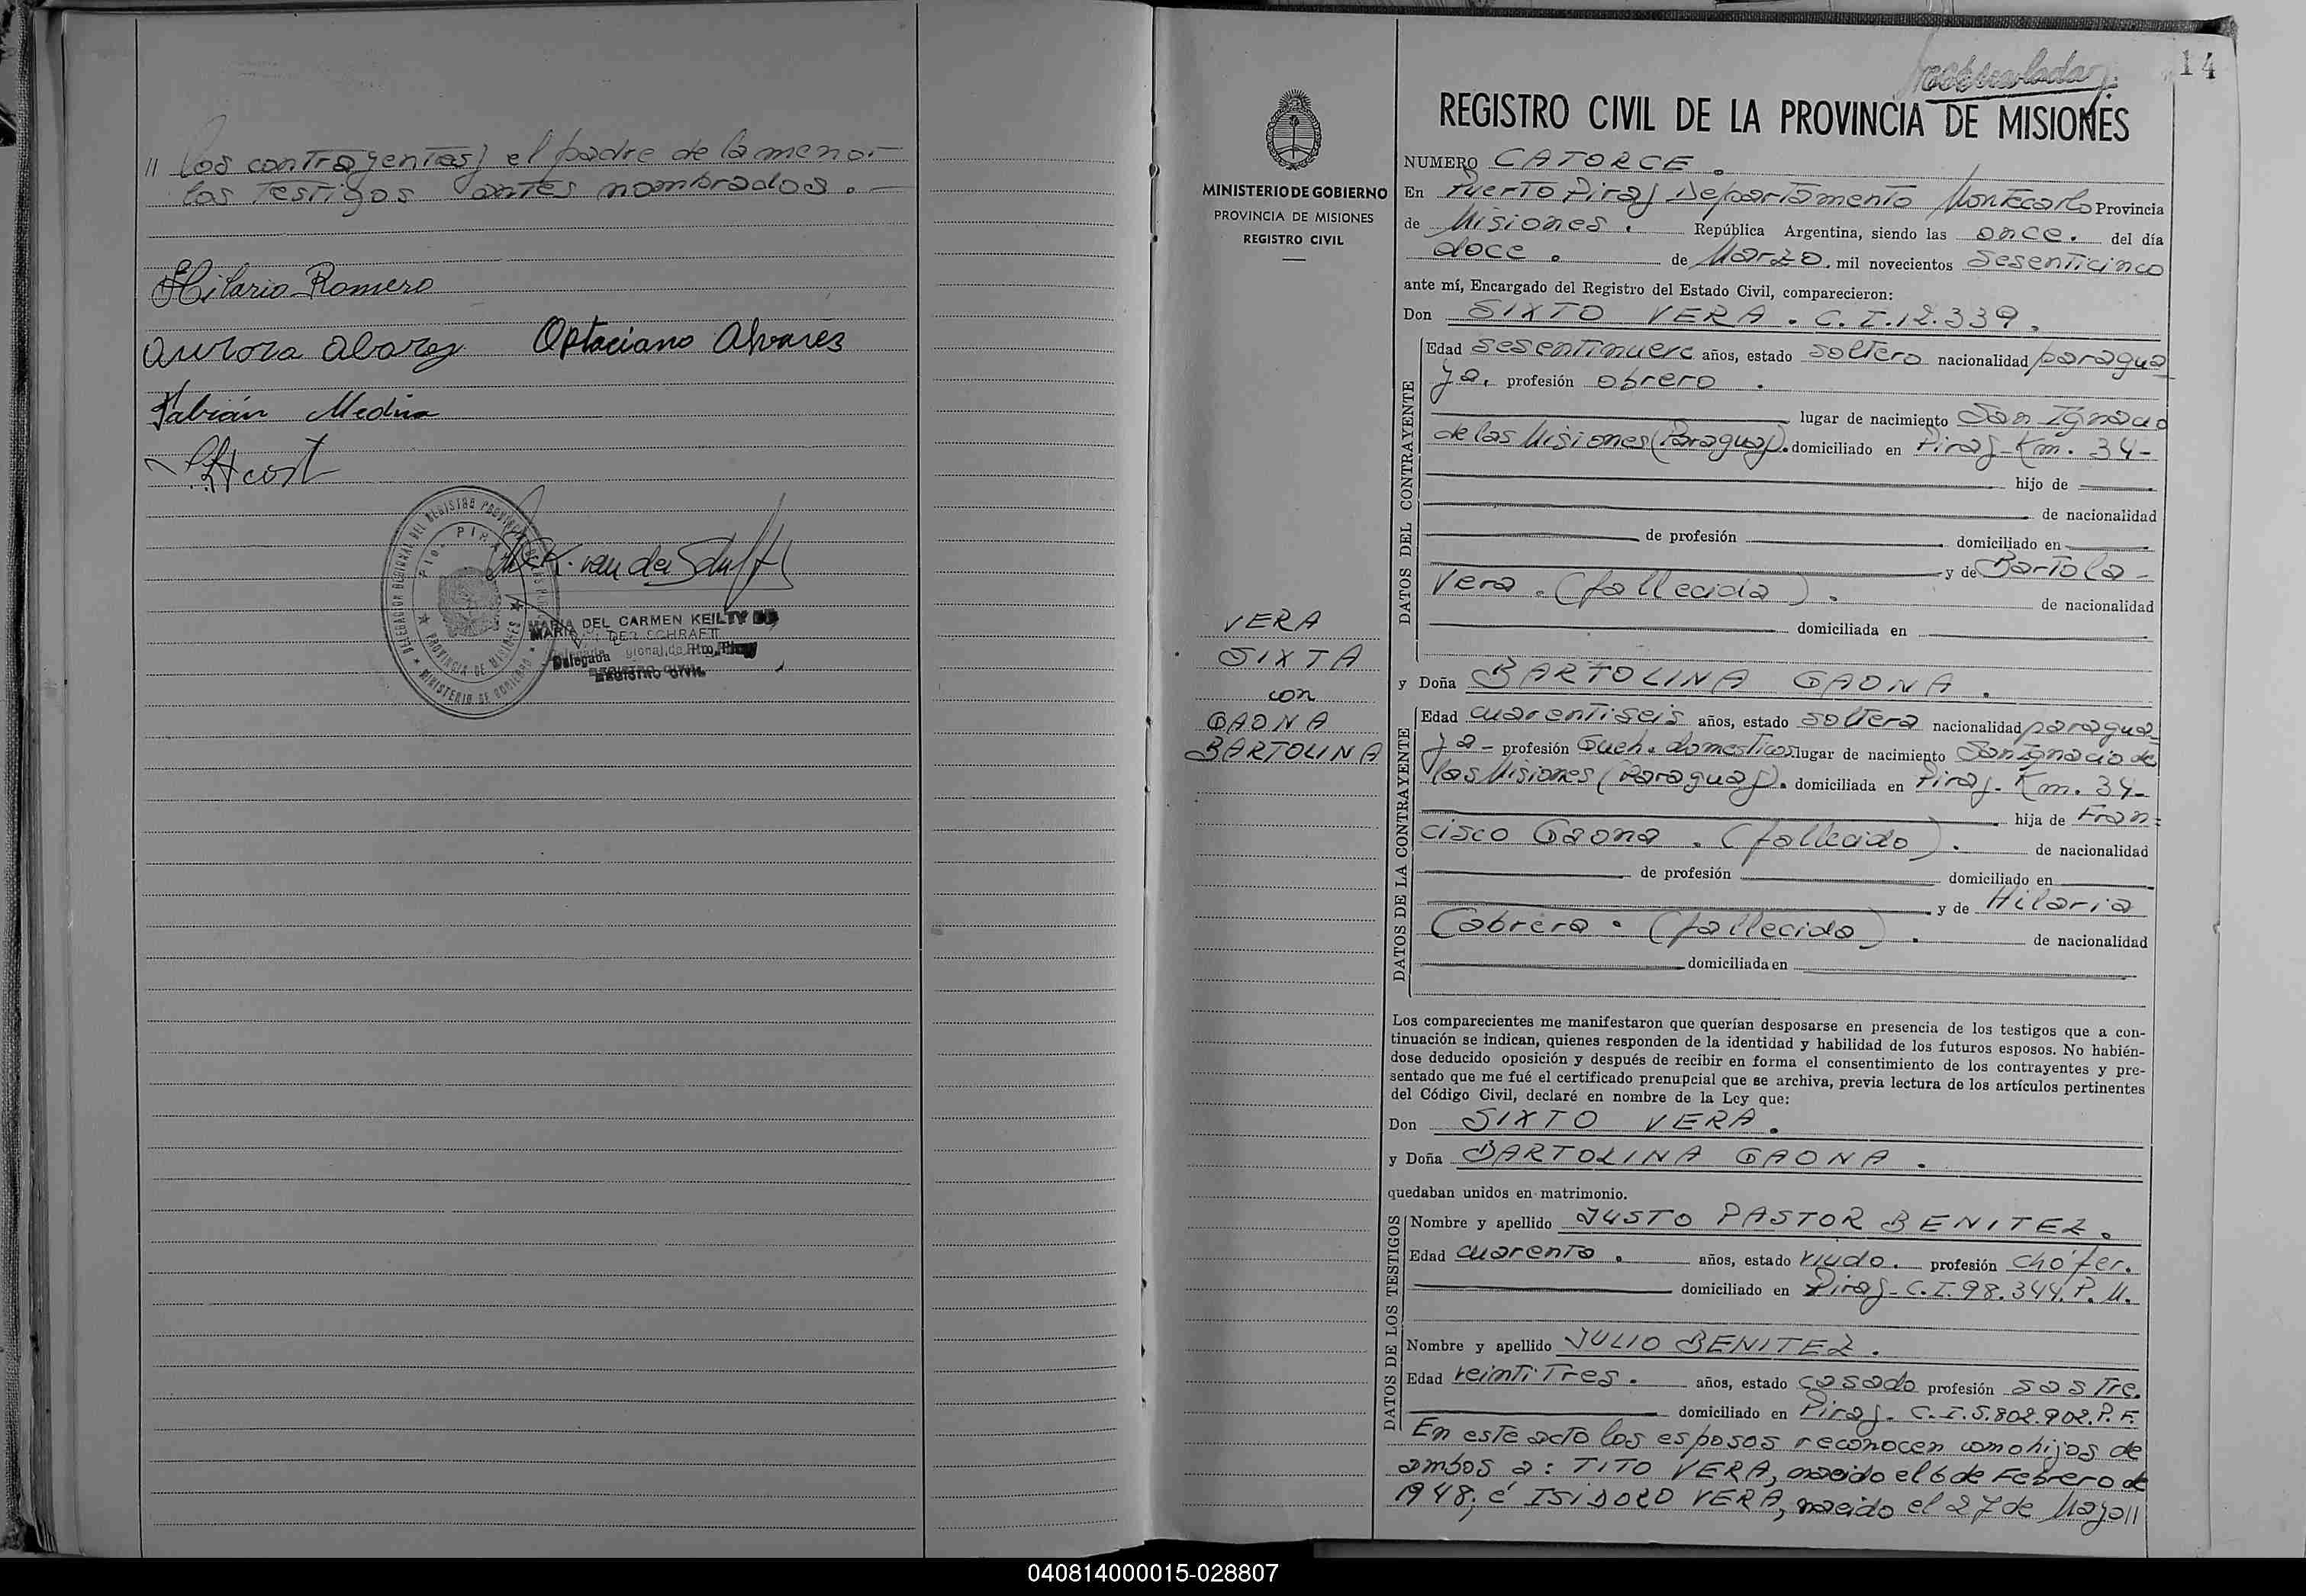 // los contrayentes y el padre de la menor
los testigos antes nombrados. —
Hilario Romero
Aurora Alvarez Optaciano Alvares
Fabián Medina
DELEGACION REGIONAL DEL REGISTRO PROVINCIAL DE LAS
PTO. PIRAY
PROVINCIA DE MISIONES
MINISTERIO DE GOBIERNO
MARIA DEL CARMEN KEILTY DE
DER SCHRAFT
Delegada Regional de Pto. Piray
REGISTRO CIVIL
14
REGISTRO CIVIL DE LA PROVINCIA DE MISIONES
MINISTERIO DE GOBIERNO
PROVINCIA DE MISIONES
REGISTRO CIVIL
VERA
SIXTA
con
GAONA
BARTOLINA
NUMERO CATORCE.
En Puerto Piray Departamento Montecarlo Provincia
de Misiones. República Argentina, siendo las once. del día
doce. de Marzo. mil novecientos sesenticinco
ante mí, Encargado del Registro del Estado Civil, comparecieron:
Don SIXTO VERA. C.I.12.339.
DATOS DEL CONTRAYENTE
Edad sesentinueve años, estado soltero nacionalidad paragua
ya. profesión obrero.
lugar de nacimiento San Ignacio
de las Misiones (Paraguay). domiciliado en Piray-Km. 34-
hijo de
de nacionalidad
de profesión domiciliado en
y de Bartola-
Vera. (fallecida). de nacionalidad
domiciliada en
y Doña BARTOLINA GAONA.
DATOS DE LA CONTRAYENTE
Edad cuarentiseis años, estado soltera nacionalidad paragua
ya- profesión Queh. domesticos lugar de nacimiento San Ignacio de
las Misiones (Paraguay). domiciliada en Piray- Km. 34-
hija de Fran=
cisco Gaona. (fallecido). de nacionalidad
de profesión domiciliado en
y de Hilaria
Cabrera. (fallecida). de nacionalidad
domiciliada en
Los comparecientes me manifestaron que querían desposarse en presencia de los testigos que a con-
tinuación se indican, quienes responden de la identidad y habilidad de los futuros esposos. No habién-
dose deducido oposición y después de recibir en forma el consentimiento de los contrayentes y pre-
sentado que me fué el certificado prenupcial que se archiva, previa lectura de los artículos pertinentes
del Código Civil, declaré en nombre de la Ley que:
Don SIXTO VERA.
y Doña BARTOLINA GAONA.
quedaban unidos en matrimonio.
DATOS DE LOS TESTIGOS
Nombre y apellido JUSTO PASTOR BENITEZ.
Edad cuarenta. años, estado viudo. profesión chófer.
domiciliado en Piray- C.I.98.344.P.M.
Nombre y apellido JULIO BENITEZ.
Edad veintitres. años, estado casado profesión sastre.
domiciliado en Piray- C.I.5.802.902.P.F.
En este acto los esposos reconocen como hijos de
ambos a: TITO VERA, nacido el 6 de Febrero de
1948; é ISIDORO VERA, nacido el 27 de Mayo//
040814000015-028807